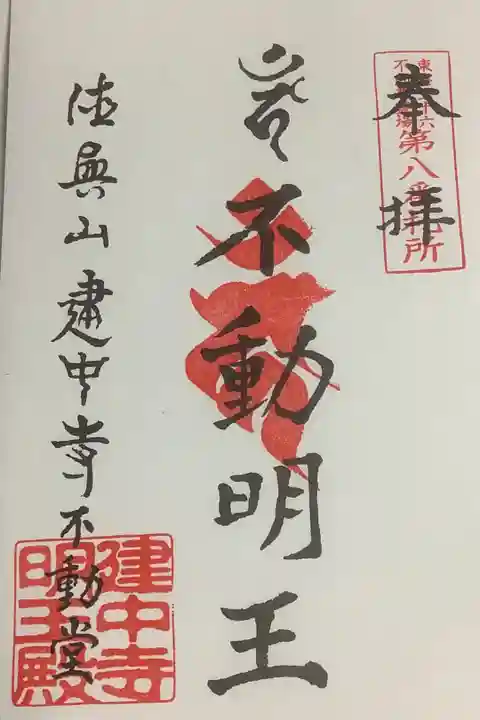 奉拝
第八番札所
不動明王
徳興山建中寺不動堂
建中寺
明王殿